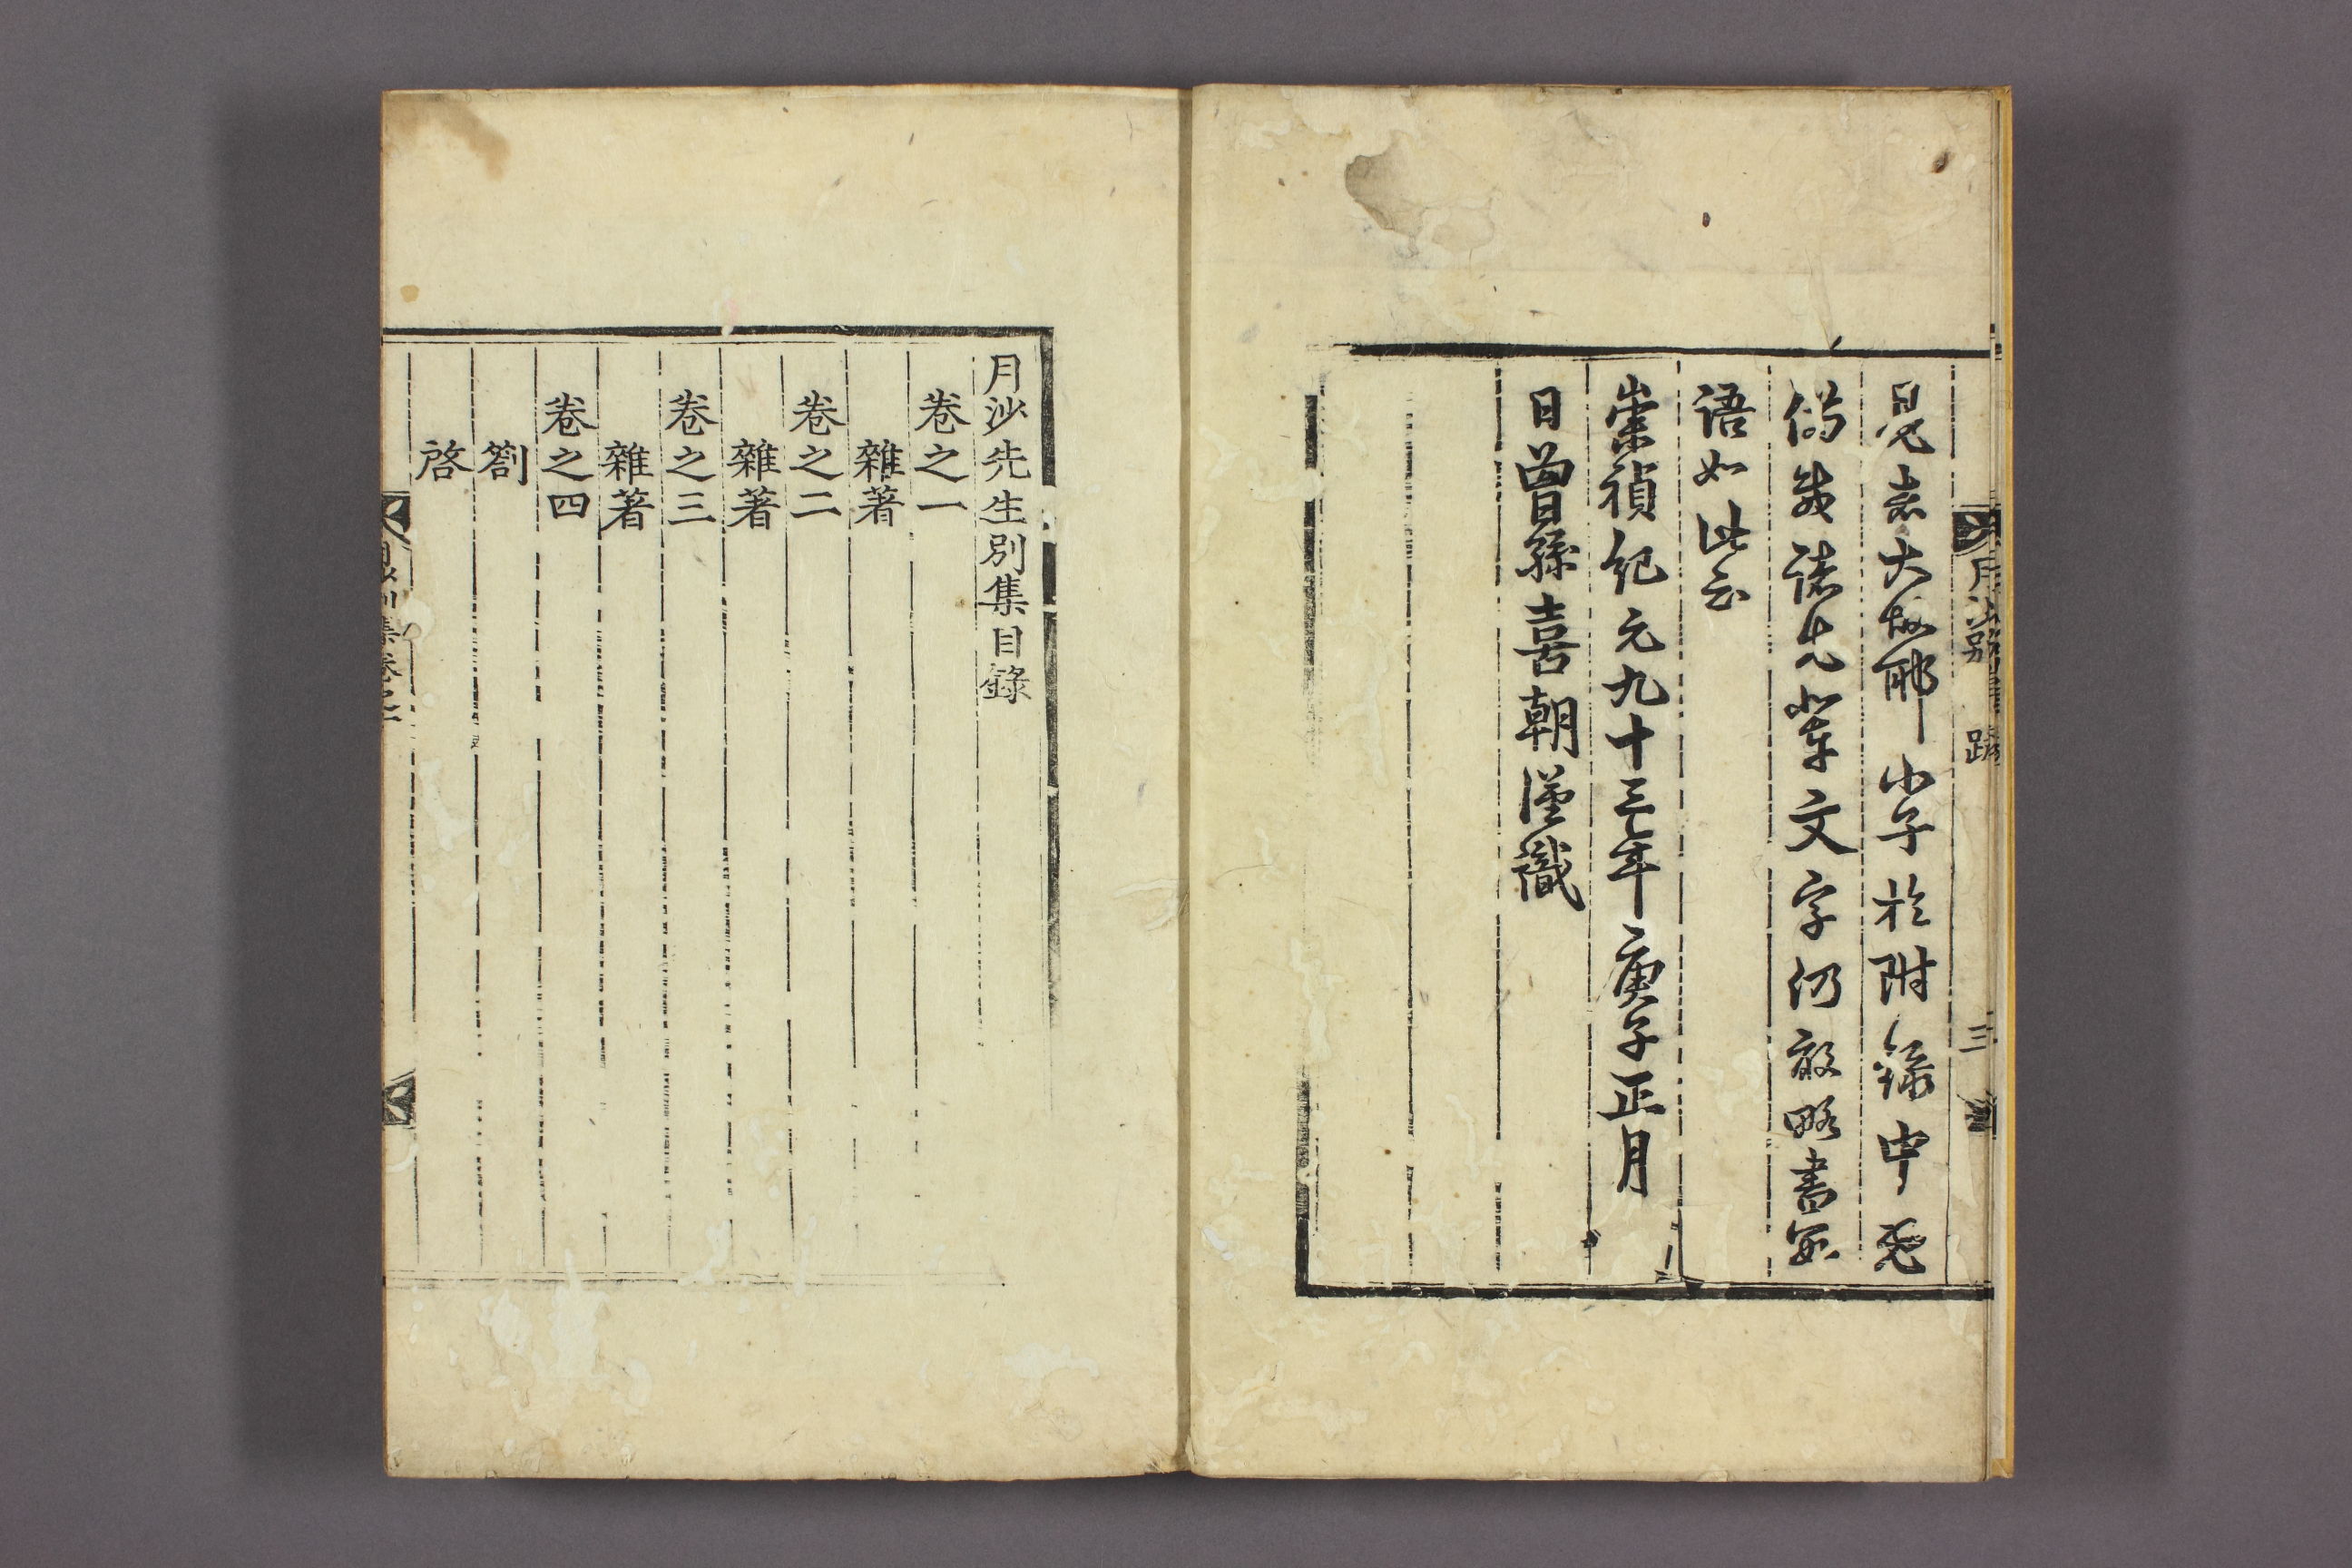 月沙別集 跋 三
大槪耶小子於附錄中
諸先輩文字仍敢略書
語如此云
崇禎紀元九十三年庚子正月
日曾孫喜朝謹識
月沙先生別集目錄
卷之一
雜著
卷之二
雜著
卷之三
雜著
卷之四
劄
啓